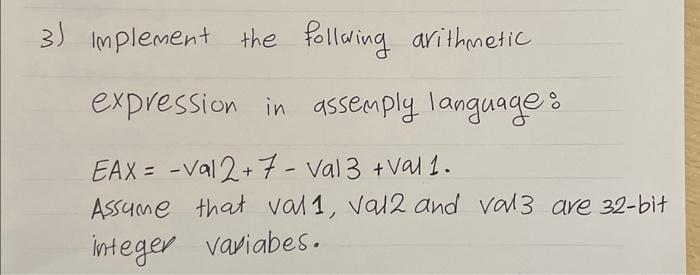 3) Implement the follwing arithmetic
expression in assemply language:
EAX = -val2 + 7 - val3 + val1.
Assume that val1, val2 and val3 are 32-bit
integer variabes.